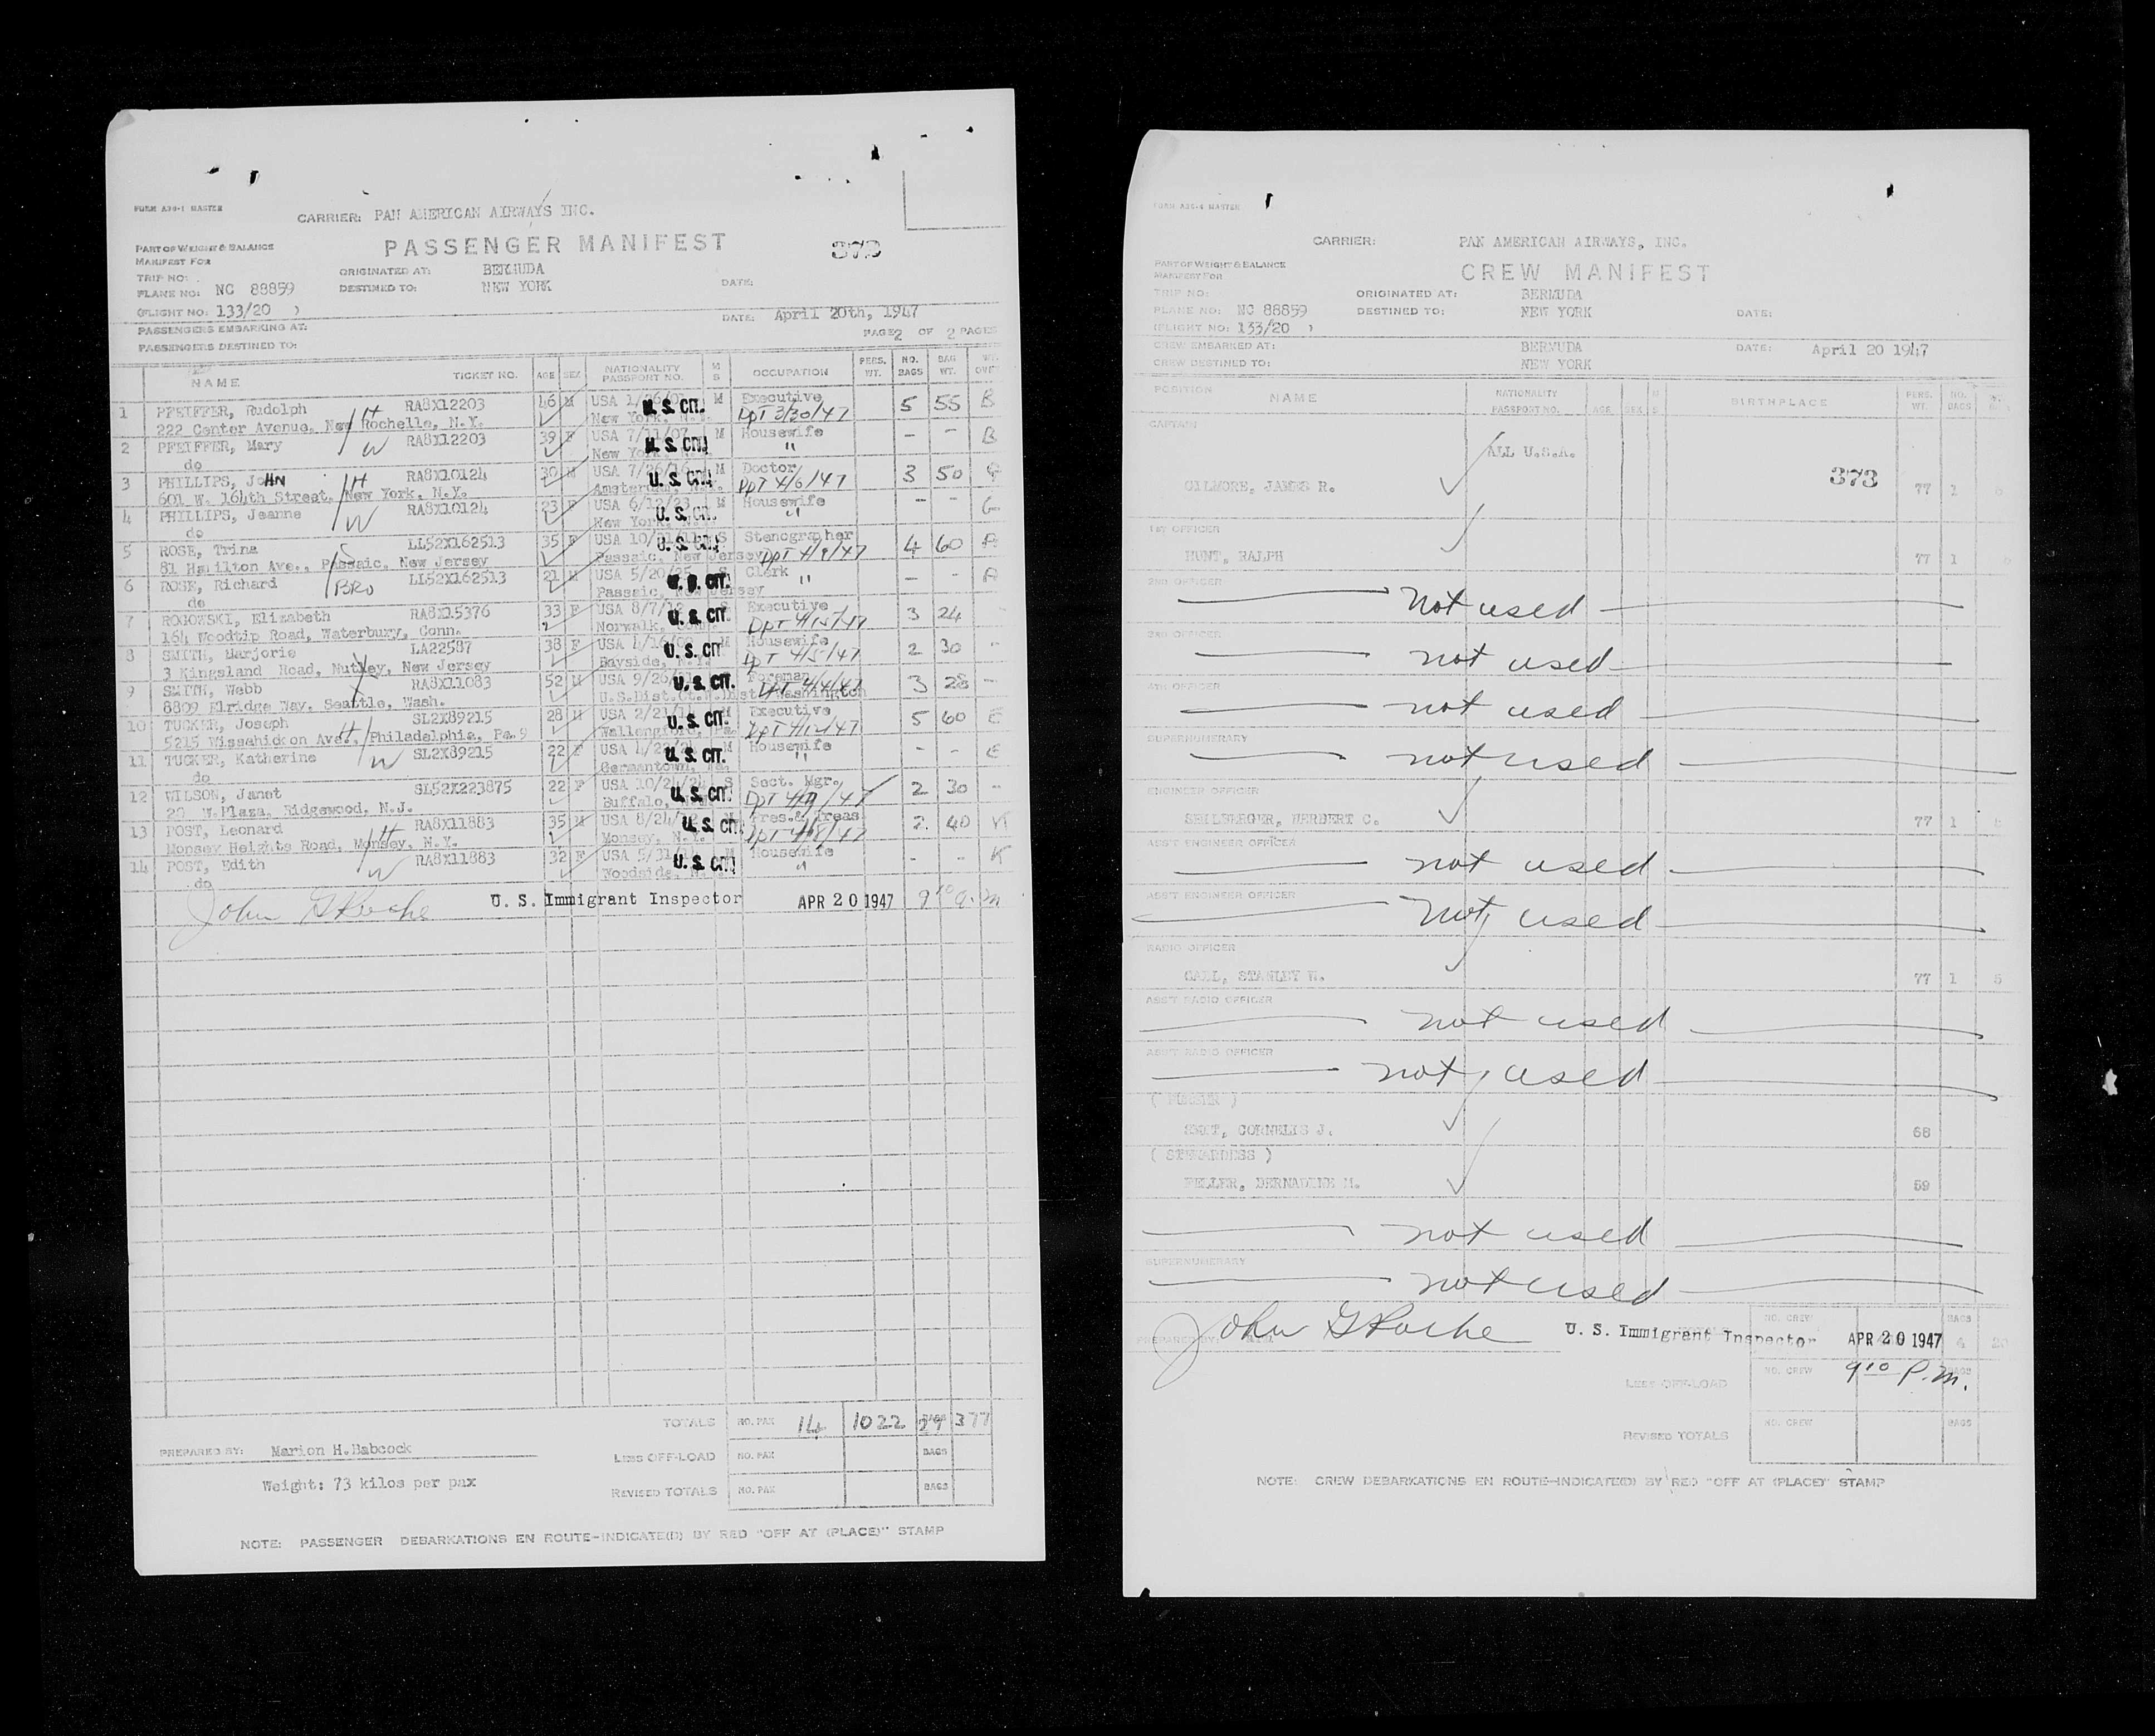 FORM A30-1 MASTER
CARRIER: PAN AMERICAN AIRWAYS INC.
PART OF WEIGHT & BALANCE
MANIFEST FOR
PASSENGER MANIFEST
373
TRIP NO:
ORIGINATED AT: BERMUDA
PLANE NO: NC 88859
DESTINED TO: NEW YORK
DATE:
(FLIGHT NO: 133/20 )
DATE: April 20th, 1947
PASSENGERS EMBARKING AT:
PAGE 2 OF 2 PAGES
PASSENGERS DESTINED TO:
NAME TICKET NO. AGE SEX NATIONALITY PASSPORT NO. M S OCCUPATION PERS. WT. NO. BAGS BAG WT.
1 PFEIFFER, Rudolph RA8X12203 46 M USA U.S. CIT. M Executive 5 55 B
222 Center Avenue, New Rochelle, N.Y. H New York, Dpt 3/30/47
2 PFEIFFER, Mary W RA8X12203 39 F USA 7/11/07 U.S. CIT. M Housewife " - - B
do New York
3 PHILLIPS, JOHN H RA8X10124 30 M USA 7/26/16 U.S. CIT. M Doctor 3 50 G
601 W. 164th Street, New York, N.Y. Dpt 4/6/47
4 PHILLIPS, Jeanne W RA8X10124 23 F USA 6/12/23 U.S. CIT. M Housewife " - - G
do New York
5 ROSE, Trina S LL52X162513 35 F USA U.S. CIT. S Stenographer 4 60 A
81 Hamilton Ave., Passaic, New Jersey Passaic, New Jersey Dpt 4/9/47
6 ROSE, Richard BRO LL52X162513 21 M USA 5/20/25 U.S. CIT. S Clerk " - - A
do Passaic, New Jersey
7 ROGOWSKI, Elizabeth RA8X15376 33 F USA U.S. CIT. Executive 3 24 -
164 Woodtip Road, Waterbury, Conn. Norwalk, Dpt 4/15/47
8 SMITH, Marjorie LA22587 38 F USA U.S. CIT. M Housewife 2 30 -
3 Kingsland Road, Nutley, New Jersey Bayside, N.Y. Dpt 4/5/47
9 SMITH, Webb RA8X11083 52 M USA U.S. CIT. Foreman 3 28 -
8809 Elridge Way, Seattle, Wash. U.S.Dist.Ct. Washington Dpt 4/4/47
10 TUCKER, Joseph SL2X89215 28 M USA U.S. CIT. M Executive 5 60 E
5215 Wissahickon Ave., H Philadelphia, Pa. 9 Wallengford, Pa. Dpt 4/12/47
11 TUCKER, Katherine W SL2X89215 22 F USA U.S. CIT. M Housewife " - - E
do Germantown, Pa.
12 WILSON, Janet SL52X223875 22 F USA 10/24/24 U.S. CIT. S Sect. Mgr. 2 30 -
20 W.Plaza, Ridgewood, N.J. Buffalo,
13 POST, Leonard RA8X11883 35 M USA U.S. CIT. Pres.& Treas 2 40 K
Monsey Heights Road, H Monsey, N.Y. Monsey, N.Y. Dpt 4/18/47
14 POST, Edith W RA8X11883 32 F USA U.S. CIT. M Housewife " - - K
do Woodside,
John G Roche U. S. Immigrant Inspector APR 20 1947
TOTALS NO. PAX 14 1022 BAGS 29 377
PREPARED BY: Marion H.Babcock
LESS OFF-LOAD NO. PAX BAGS
Weight: 73 kilos per pax
REVISED TOTALS NO. PAX BAGS
NOTE: PASSENGER DEBARKATIONS EN ROUTE-INDICATE(D) BY RED "OFF AT (PLACE)" STAMP
FORM A30-4 MASTER
CARRIER: PAN AMERICAN AIRWAYS, INC.
PART OF WEIGHT & BALANCE
MANIFEST FOR
CREW MANIFEST
TRIP NO:
ORIGINATED AT: BERMUDA
PLANE NO: NC 88859
DESTINED TO: NEW YORK
DATE:
(FLIGHT NO: 133/20 )
CREW EMBARKED AT: BERMUDA
DATE: April 20 1947
CREW DESTINED TO: NEW YORK
POSITION NAME NATIONALITY PASSPORT NO. AGE SEX M S BIRTHPLACE PERS. WT. NO. BAGS
CAPTAIN
ALL U.S.A.
373
GILMORE, JAMES R. 77 1
1ST OFFICER
HUNT, RALPH 77 1
2ND OFFICER
not used
not used
4TH OFFICER
not used
SUPERNUMERARY
not used
ENGINEER OFFICER
SEHLBERGER, HERBERT C. 77 1
ASS'T ENGINEER OFFICER
not used
ASS'T ENGINEER OFFICER
not used
RADIO OFFICER
GALL, STANLEY W. 77 1 5
ASS'T RADIO OFFICER
not used
ASS'T RADIO OFFICER
not used
( PURSER )
SMIT, CORNELIS J. 68
( STEWARDESS )
FELLER, BERNADINE M. 59
not used
SUPERNUMERARY
not used
PREPARED BY:
John G Roche U. S. Immigrant Inspector APR 20 1947
NO. CREW BAGS 4
9:10 P.M.
LESS OFF-LOAD NO. CREW BAGS
REVISED TOTALS NO. CREW BAGS
NOTE: CREW DEBARKATIONS EN ROUTE-INDICATE(D) BY RED "OFF AT (PLACE)" STAMP